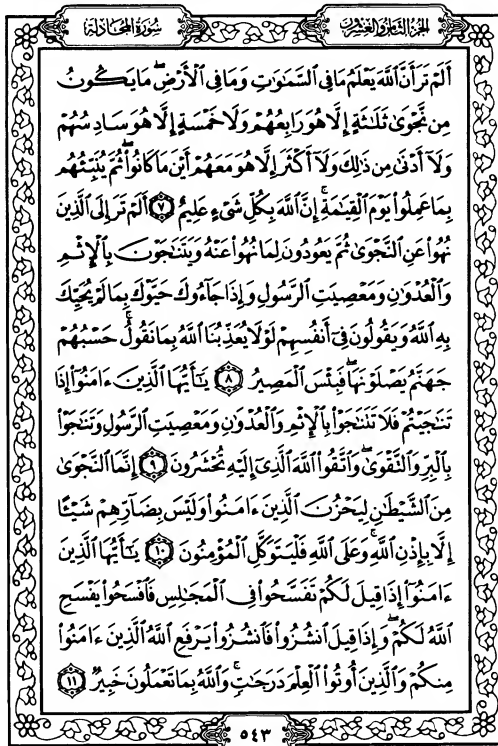 سُورَةُ المُجَادلَةِ
الجزءُ الثَّامِنُ وَالعِشْرُونَ
أَلَمْ تَرَ أَنَّ ٱللَّهَ يَعْلَمُ مَا فِى ٱلسَّمَٰوَٰتِ وَمَا فِى ٱلْأَرْضِ ۖ مَا يَكُونُ
مِن نَّجْوَىٰ ثَلَٰثَةٍ إِلَّا هُوَ رَابِعُهُمْ وَلَا خَمْسَةٍ إِلَّا هُوَ سَادِسُهُمْ
وَلَآ أَدْنَىٰ مِن ذَٰلِكَ وَلَآ أَكْثَرَ إِلَّا هُوَ مَعَهُمْ أَيْنَ مَا كَانُوا۟ ۖ ثُمَّ يُنَبِّئُهُم
بِمَا عَمِلُوا۟ يَوْمَ ٱلْقِيَٰمَةِ ۚ إِنَّ ٱللَّهَ بِكُلِّ شَىْءٍ عَلِيمٌ ٧ أَلَمْ تَرَ إِلَى ٱلَّذِينَ
نُهُوا۟ عَنِ ٱلنَّجْوَىٰ ثُمَّ يَعُودُونَ لِمَا نُهُوا۟ عَنْهُ وَيَتَنَٰجَوْنَ بِٱلْإِثْمِ
وَٱلْعُدْوَٰنِ وَمَعْصِيَتِ ٱلرَّسُولِ وَإِذَا جَآءُوكَ حَيَّوْكَ بِمَا لَمْ يُحَيِّكَ
بِهِ ٱللَّهُ وَيَقُولُونَ فِىٓ أَنفُسِهِمْ لَوْلَا يُعَذِّبُنَا ٱللَّهُ بِمَا نَقُولُ ۚ حَسْبُهُمْ
جَهَنَّمُ يَصْلَوْنَهَا ۖ فَبِئْسَ ٱلْمَصِيرُ ٨ يَٰٓأَيُّهَا ٱلَّذِينَ ءَامَنُوٓا۟ إِذَا
تَنَٰجَيْتُمْ فَلَا تَتَنَٰجَوْا۟ بِٱلْإِثْمِ وَٱلْعُدْوَٰنِ وَمَعْصِيَتِ ٱلرَّسُولِ وَتَنَٰجَوْا۟
بِٱلْبِرِّ وَٱلتَّقْوَىٰ ۖ وَٱتَّقُوا۟ ٱللَّهَ ٱلَّذِىٓ إِلَيْهِ تُحْشَرُونَ ٩ إِنَّمَا ٱلنَّجْوَىٰ
مِنَ ٱلشَّيْطَٰنِ لِيَحْزُنَ ٱلَّذِينَ ءَامَنُوا۟ وَلَيْسَ بِضَآرِّهِمْ شَيْـًٔا
إِلَّا بِإِذْنِ ٱللَّهِ ۚ وَعَلَى ٱللَّهِ فَلْيَتَوَكَّلِ ٱلْمُؤْمِنُونَ ١٠ يَٰٓأَيُّهَا ٱلَّذِينَ
ءَامَنُوٓا۟ إِذَا قِيلَ لَكُمْ تَفَسَّحُوا۟ فِى ٱلْمَجَٰلِسِ فَٱفْسَحُوا۟ يَفْسَحِ
ٱللَّهُ لَكُمْ ۖ وَإِذَا قِيلَ ٱنشُزُوا۟ فَٱنشُزُوا۟ يَرْفَعِ ٱللَّهُ ٱلَّذِينَ ءَامَنُوا۟
مِنكُمْ وَٱلَّذِينَ أُوتُوا۟ ٱلْعِلْمَ دَرَجَٰتٍ ۚ وَٱللَّهُ بِمَا تَعْمَلُونَ خَبِيرٌ ١١
٥٤٣